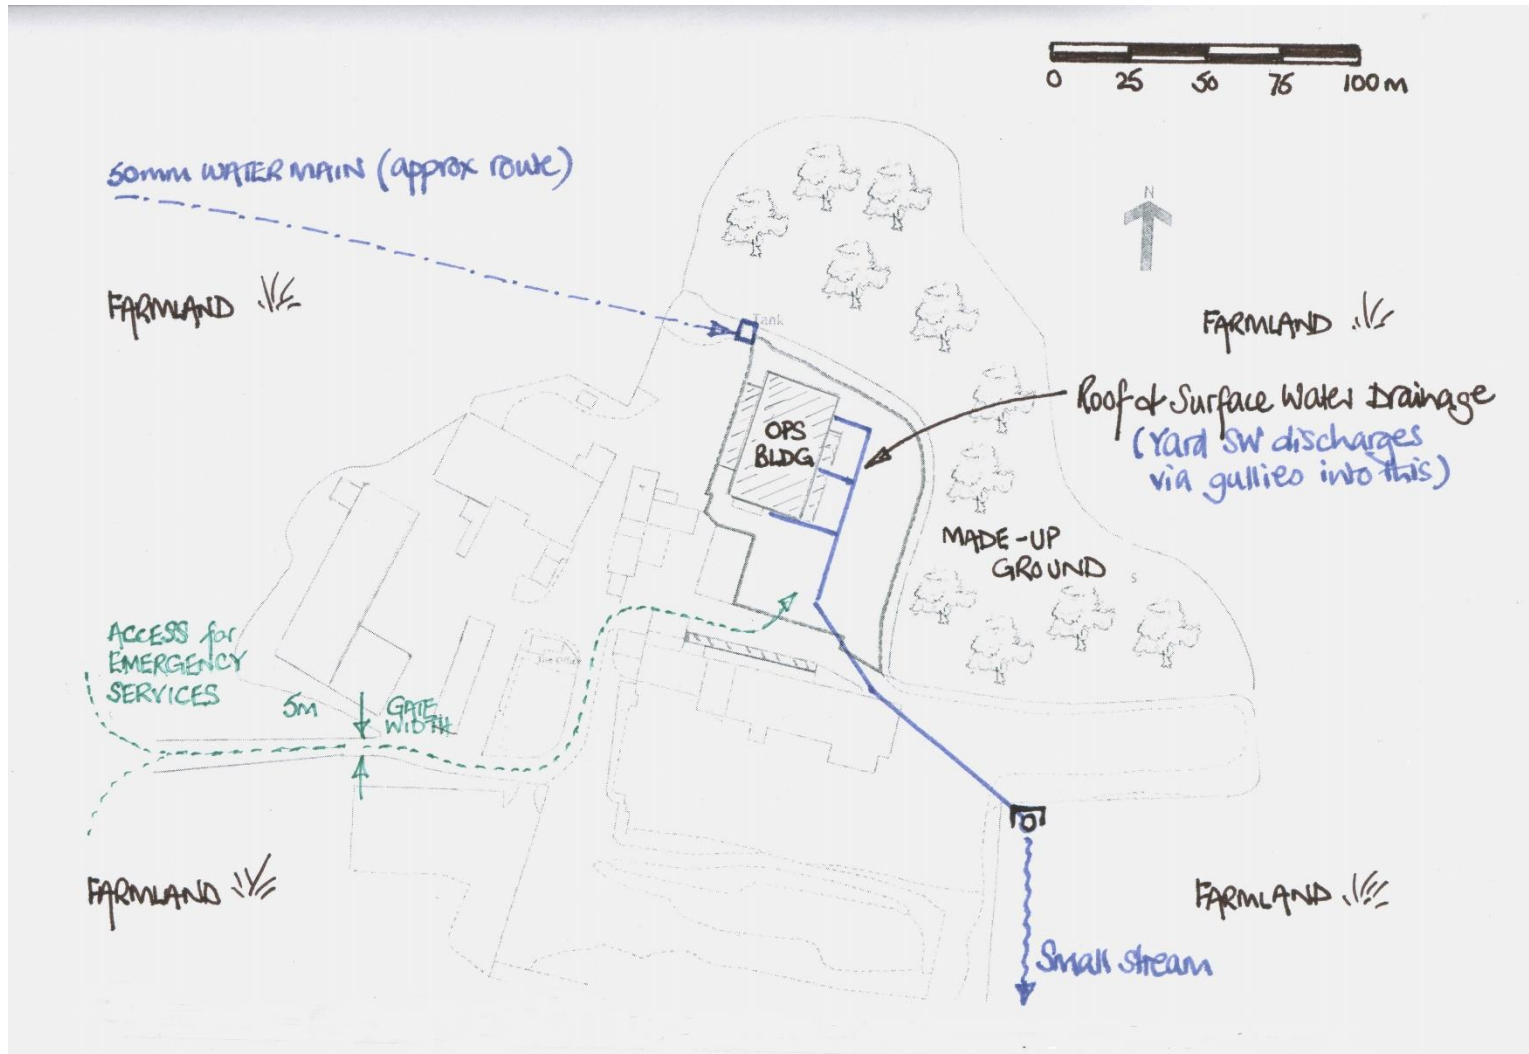 0 25 50 75 100m
50mm WATER MAIN (approx route)
N
FARMLAND
FARMLAND
Tank
Roof & Surface Water Drainage
(Yard SW discharges
via gullies into this)
OPS
BLDG
MADE-UP
GROUND
S
ACCESS for
EMERGENCY
SERVICES
5m
GATE
WIDTH
FARMLAND
FARMLAND
Small stream